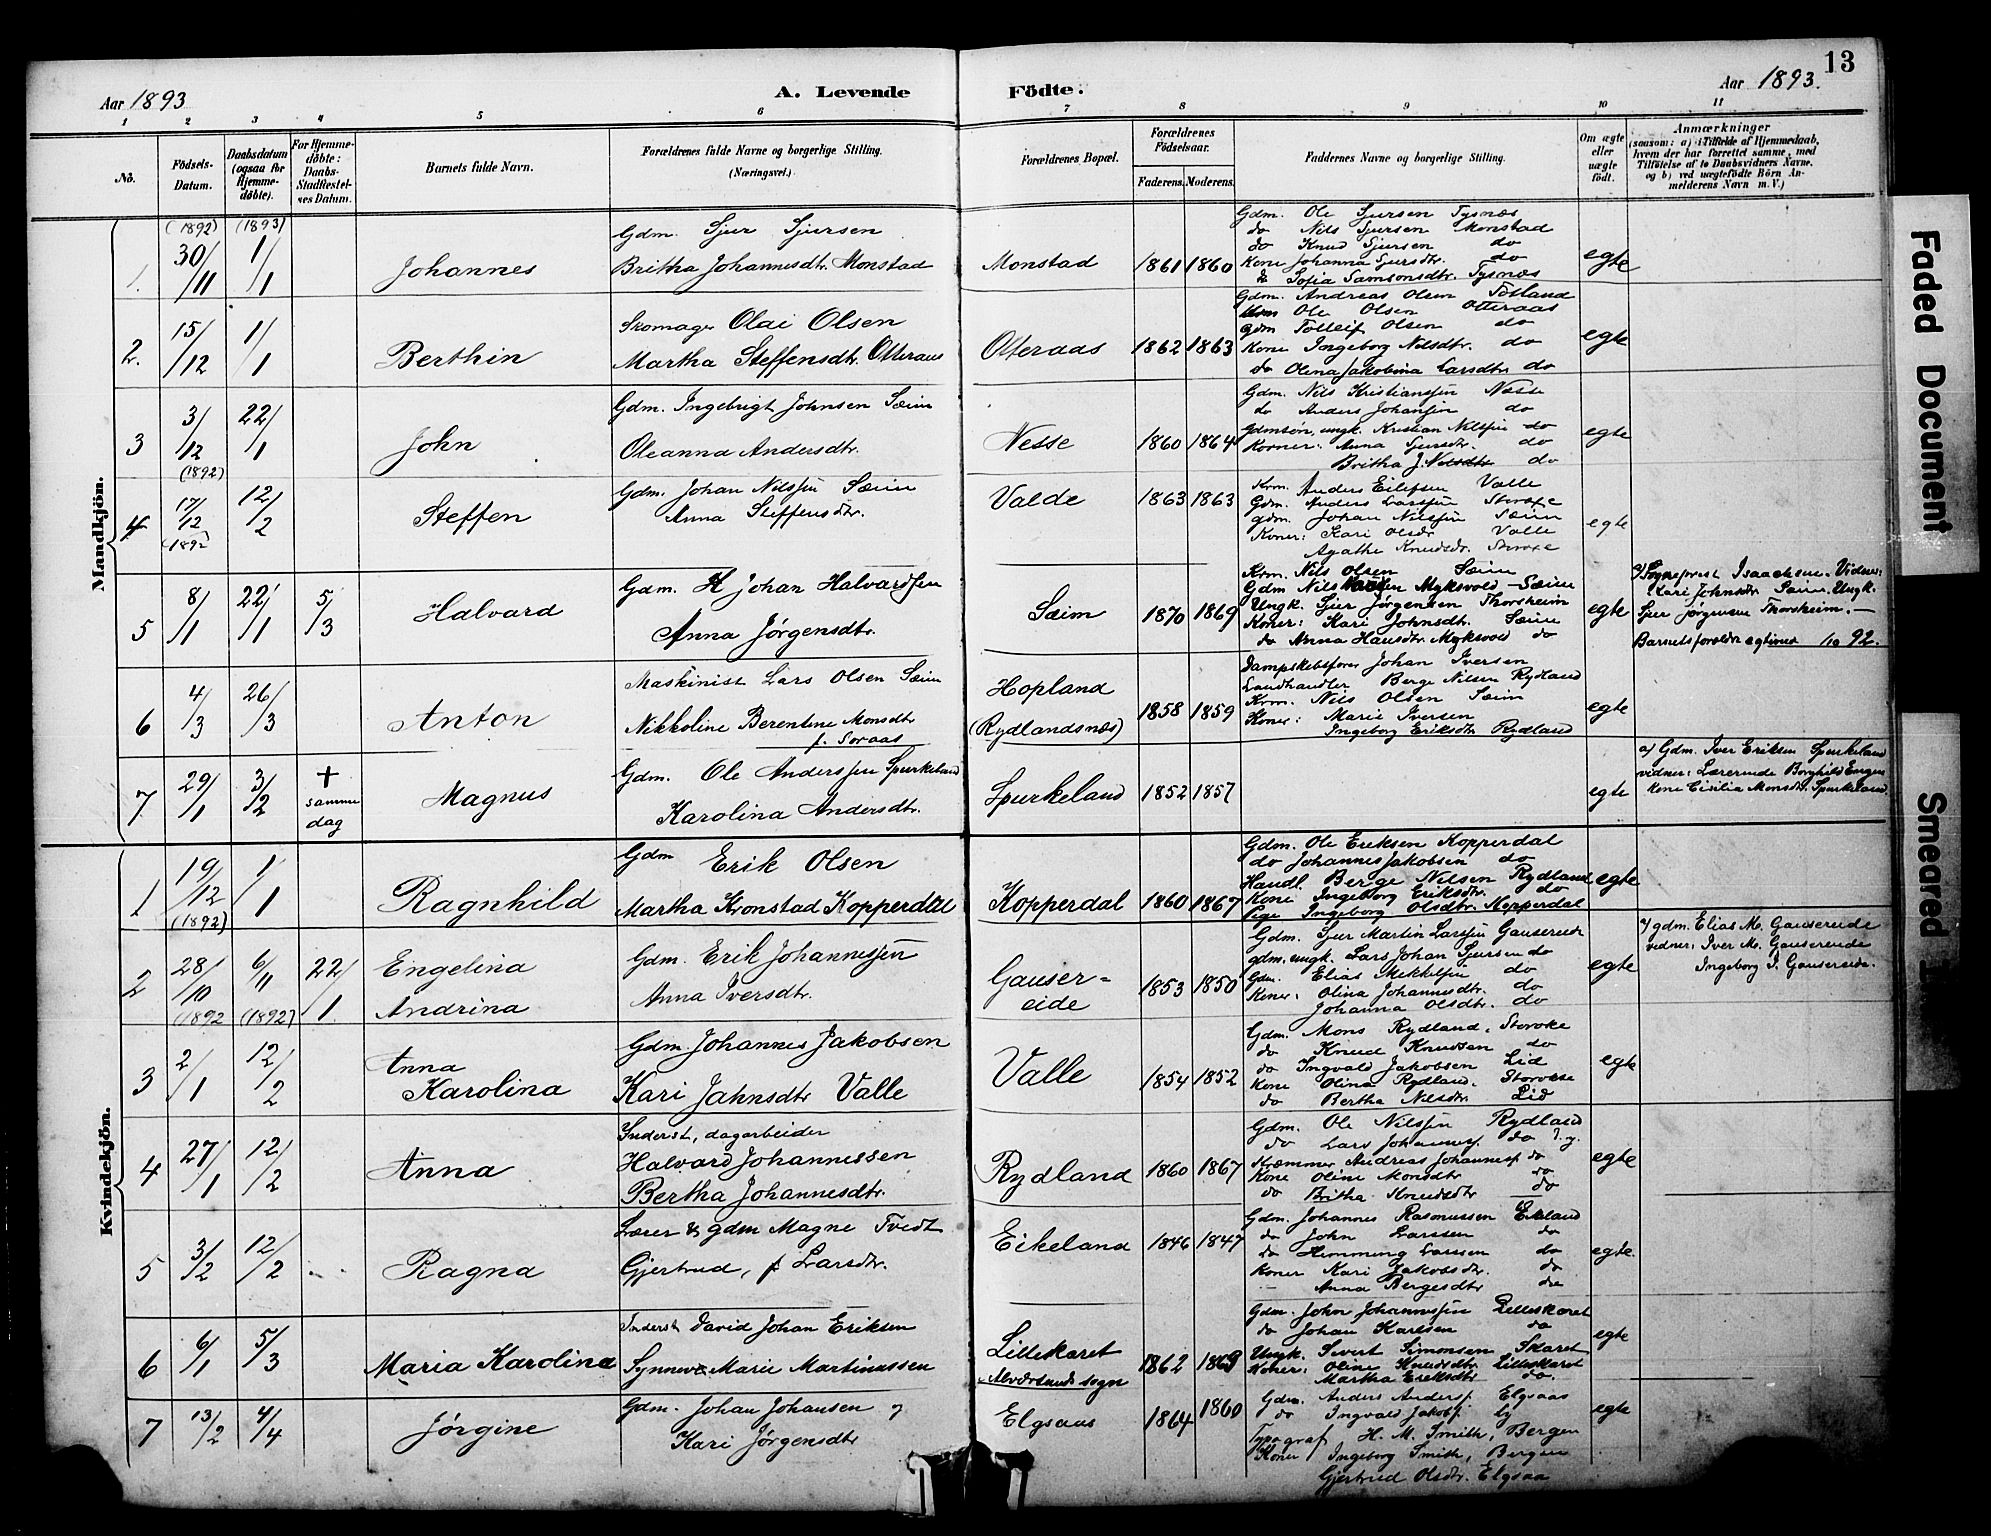 13
Aar 1893
A. Levende
Födte.
Aar 1893.
1 2 3 4 5 6 7 8 9 10 11
No.
Födsels-
Datum.
Daabsdatum
(ogsaa for
Hjemme-
døbte).
For Hjemme-
døbte:
Daabs-
Stadfæstel-
ses Datum.
Barnets fulde Navn.
Forældrenes fulde Navne og borgerlige Stilling.
(Næringsvei.)
Forældrenes Bopæl.
Forældrenes
Födselsaar.
Faderens. Moderens.
Faddernes Navne og borgerlige Stilling.
Om ægte
eller
uægte
födt.
Anmærkninger
(saasom: a) i Tilfælde af Hjemmedaab,
hvem der har forrettet samme, med
Tilføielse af to Daabsvidners Navne.
og b) ved uægtefödte Börn An-
melderens Navn m. V.)
Mandkjön.
1.
(1892)
30/11
(1893)
1/1
Johannes
Gdm. Sjur Sjursen
Britha Johannesdtr. Monstad
Monstad
1861 1860
Gdm. Ole Sjursen Tysnæs
do Nils Sjursen Monstad
do Knud Sjursen do
Kone Johanna Sjursdtr. do
do Sofia Samsonsdtr. Tysnæs
egte
2.
15/12
1/1
Berthin
Skomager Olai Olsen
Martha Steffensdtr. Otteraas
Otteraas
1862 1863
Gdm. Andreas Olsen Totland
Ole Olsen Otteraas
Gdm Tolleif Olsen do
Kone Ingeborg Nilsdtr. do
do Olina Jakobina Larsdtr. do
egte
3
3/12
(1892)
22/1
John
Gdm. Ingebrigt Johnsen Sæim
Oleanna Andersdtr.
Nesse
1860 1864
Gdm. Nils Kristiansen Nesse
do Anders Johansen do
Gdmsøn, ungk. Kristian Nilsen do
Koner: Anna Sjursdtr. do
Britha J. Nilsdtr do
egte
4
17/12
1892
12/2
Steffen
Gdm. Johan Nilsen Sæim
Anna Steffensdtr.
Valde
1863 1863
Krm. Anders Eilefsen Valle
Gdm. Anders Larssen Storoxe
gdm. Johan Nilssen Sæim
Koner: Kari Olsdr Valle
Agathe Knudsdr. Storoxe
egte
5
8/1
22/1
5/3
Halvard
Gdm. H Johan Halvardsen
Anna Jørgensdtr.
Sæim
1870 1869
Krm. Nils Olsen Sæim
Gdm Nils Myksvold Sæim
Ungk. Sjur Jørgensen Thorsheim
Koner: Kari Johnsdtr. Sæim
do Anna Hansdtr. Myksvold do
egte
a) Sogneprest Isaachsen. Vidner:
Kari Johnsdtr. Sæim. Ungk.
Sjur Jørgensen Thorsheim. —
Barnets foreldre egtviet 1/10 92.
6
4/3
26/3
Anton
Maskinist Lars Olsen Sæim
Nikkoline Berentine Monsdtr
f. Soraas
Hopland
(Rydlandsnæs)
1858 1859
Dampskibsfører Johan Iversen
Landhandler Berge Nilsen Rydland
Krm. Nils Olsen Sæim
Koner: Marie Iversen
Ingeborg Eriksdtr Rydland
egte
7
29/1
3/2
+
samme
dag
Magnus
Gdm. Ole Anderssen Spurkeland
Karolina Andersdtr.
Spurkeland
1852 1857
egte
a) Gdm. Iver Eriksen Spurkeland
vidner: Lærerinde Borghild Engen
kone Cisilia Monsdtr. Spurkeland
Kvindekjön.
1
19/12
(1892)
1/1
Ragnhild
Gdm Erik Olsen
Martha Kronstad Kopperdal
Kopperdal
1860 1867
Gdm. Ole Eriksen Kopperdal
do Johannes Jakobsen do
Handl. Berge Nilsen Rydland
Kone Ingeborg Eriksdtr. do
Pige Ingeborg Olsdtr. Kopperdal
egte
2
28/10
(1892
6/11
(1892)
22/1.
Engelina
Andrina
Gdm. Erik Johannessen
Anna Iversdtr.
Gauser=
eide
1853 1850
Gdm. Sjur Martin Larssen Gausereide
gdm. ungk. Lars Johan Sjursen do
Gdm. Elias Mikkelsen do
Koner: Olina Johannesdtr. do
Johanna Olsdtr. do
egte
a) gdm. Elias M. Gausereide
vidner: Iver M. Gausereide
Ingeborg I. Gausereide.
3
2/1
12/2
Anna
Karolina
Gdm. Johannes Jakobsen
Kari Jahnsdtr Valle
Valle
1854 1852
Gdm. Mons Rydland, Storoke
do Knud Knudsen do
do Ingvald Jakobsen Lid
Kone Olina Rydland. Storoxe
do Bertha Nilsdtr. Lid
egte
4
27/1
12/2
Anna
Inderst, dagarbeider
Halvard Johannessen
Bertha Johannesdtr.
Rydland
1860 1867
Gdm. Ole Nilssen Rydland
do Lars Johannes. do
Kræmmer Andreas Johannes. do
Kone Oline Monsdtr do
do Britha Knudsdtr do
egte
5
3/2
12/2
Ragna
Lærer & gdm Magne Tvedt
Gjertrud, f. Larsdtr.
Eikeland
1846 1847
Gdm. Johannes Rasmussen Eikland
do John Larssen do
do Hemming Larssen do
Koner Kari Jakobsdtr. do
Anna Bergesdtr do
egte.
6
6/1
5/3
Maria Karolina
Inderst David Johan Eriksen
Synneve Marie Martinussen
Lilleskaret
Alversunds sogn
1862 1869
Gdm. John Johannessen Lilleskaret
do Johan Karlsen do
Ungk. Sivert Simonsen Skaret
Koner: Oline Knudsdtr. Lilleskaret
Martha Eriksdtr do.
egte
7
13/2
4/4
Jørgine
Gdm. Johan Johansen og
Kari Jørgensdtr
Elgsaas
1864 1860
Gdm. Anders Anders. Elgsaas
do Ingvald Jakobs.
Typograf H. M. Smith, Bergen
Koner Ingeborg Smith, Bergen
Gjertrud Olsdtr. Elgsaa
egte
Faded Document
Smeared